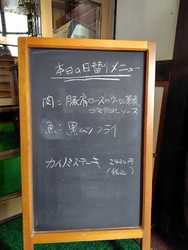 本日の日替りメニュー
肉：豚肩ロースの
ソース
魚：黒ムツフライ
カイノミステーキ 2420円
(税込)